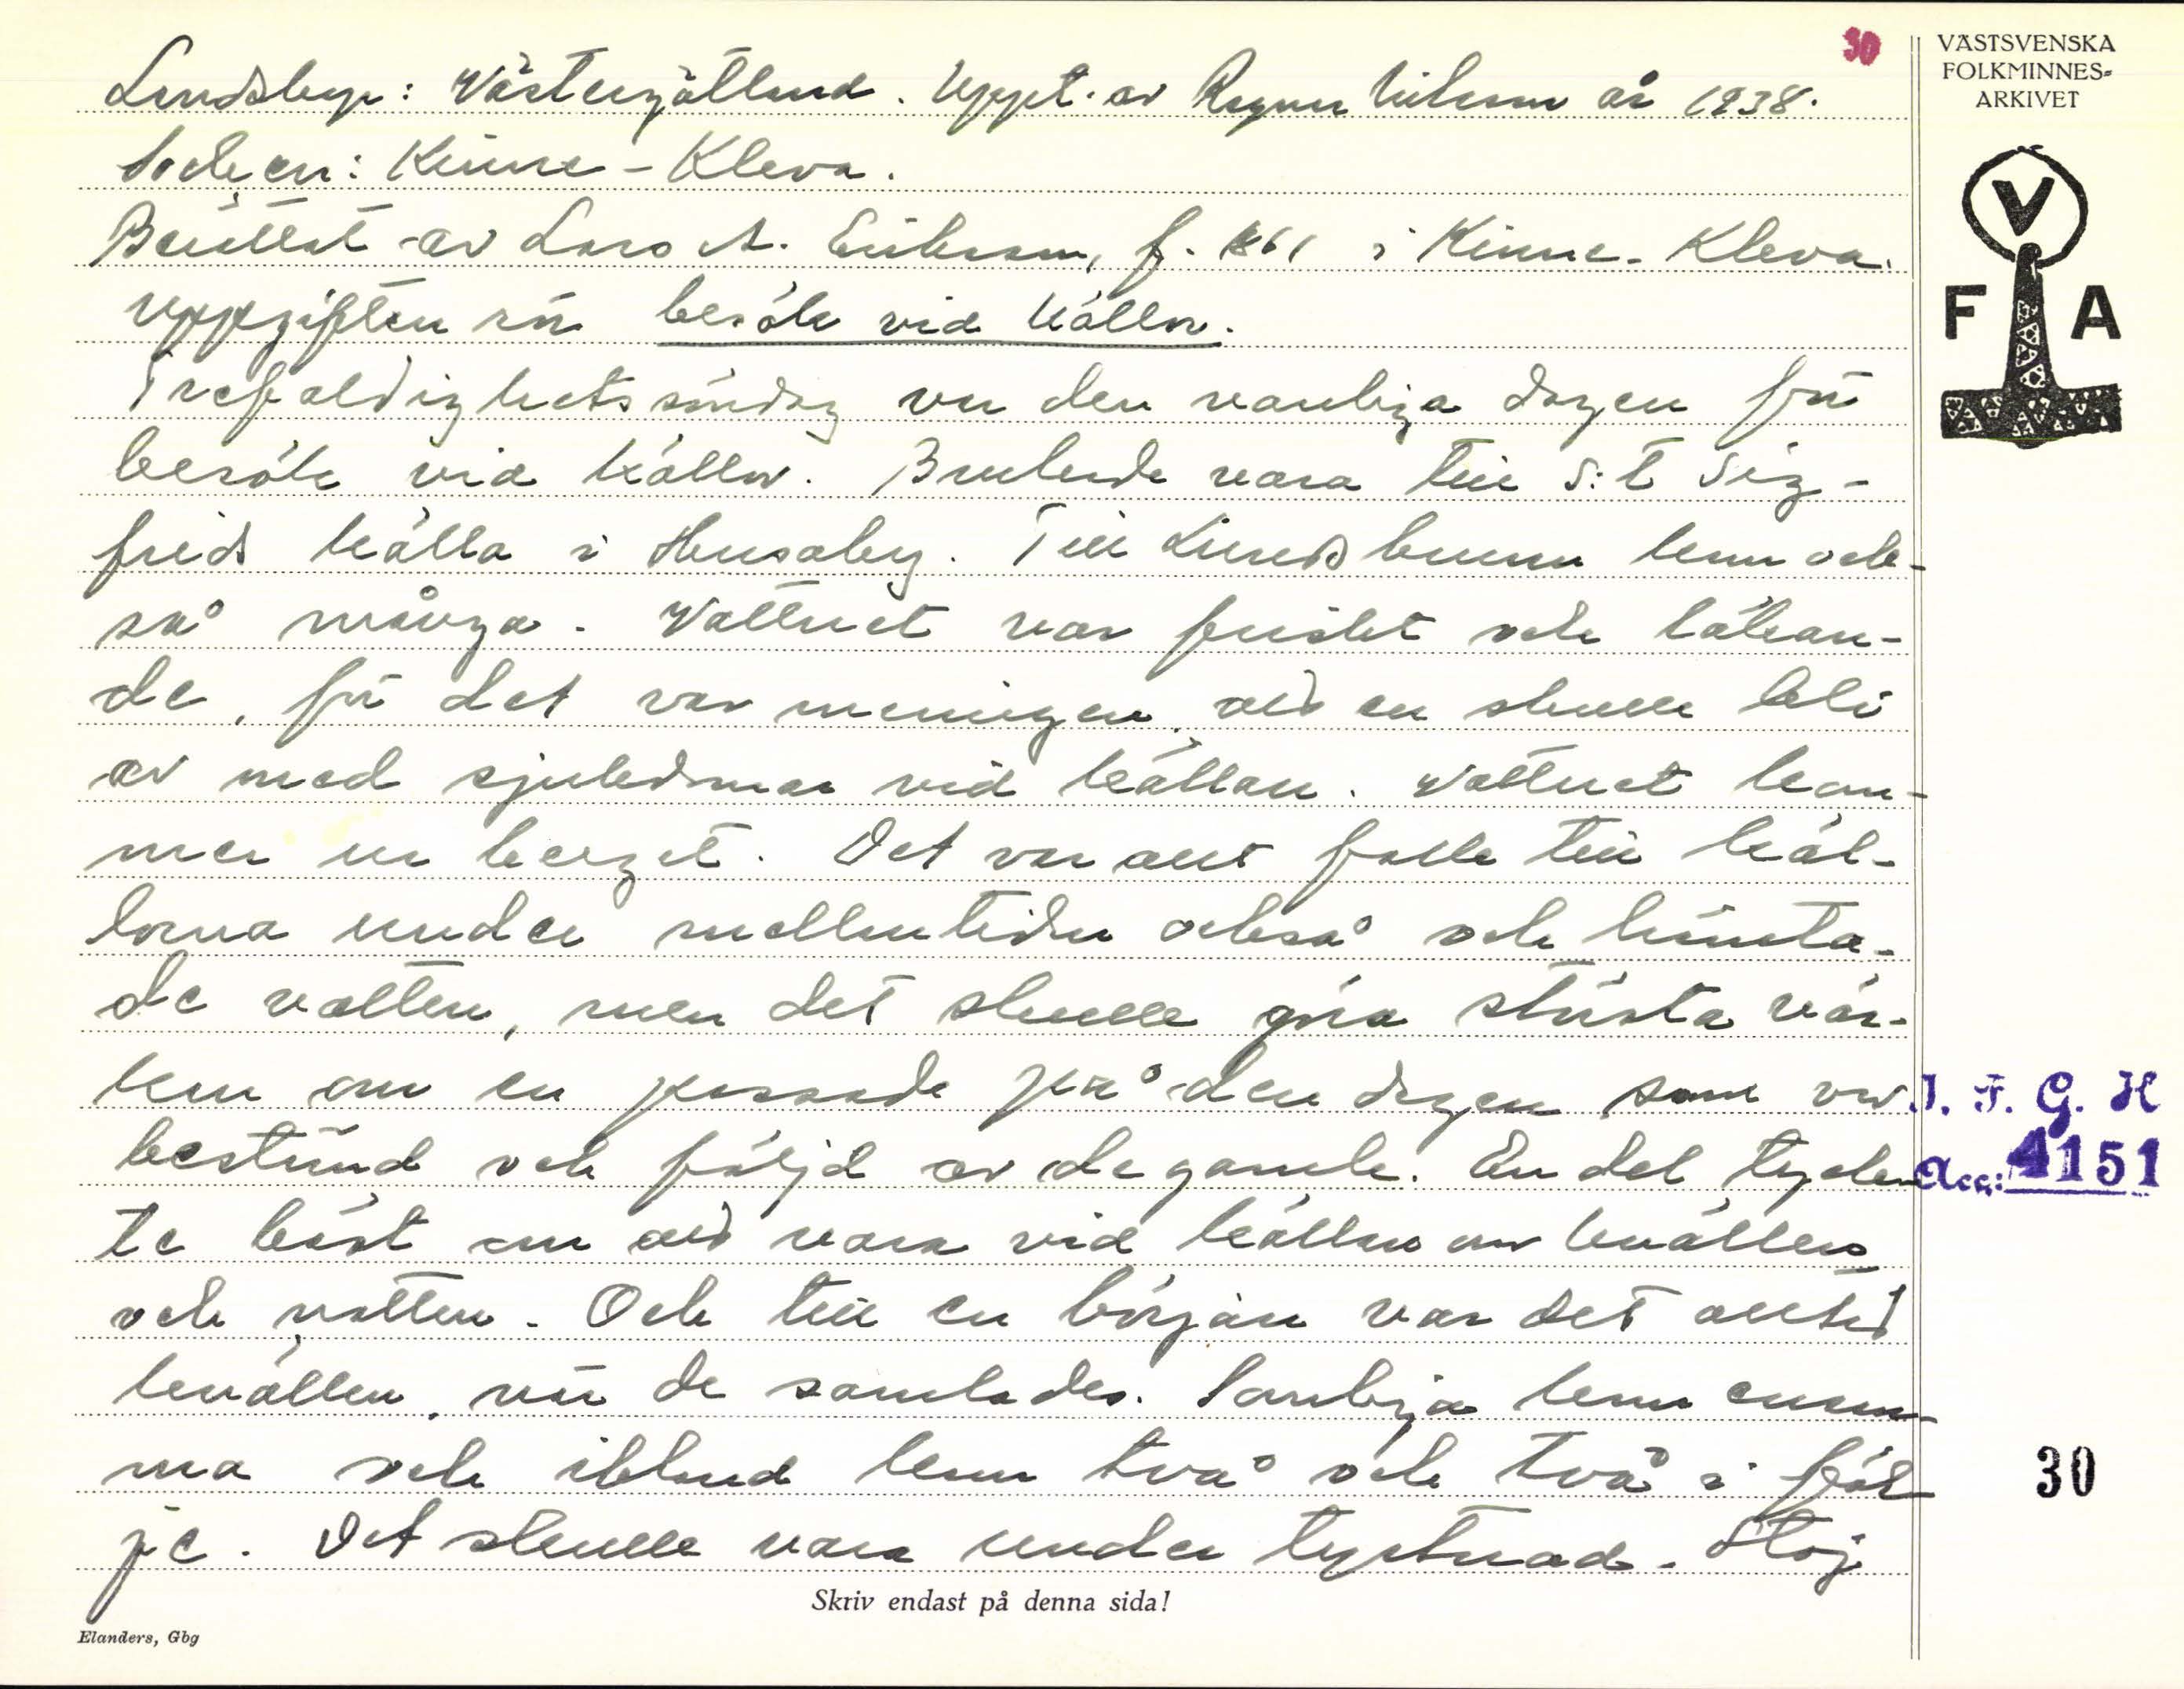 30
VÄSTSVENSKA
FOLKMINNES=
ARKIVET
V
F A
Landskap: Västergötland. Uppt. av Ragnar Nilsson år 1938.
Socken: Kinne-Kleva.
Berättat av Lars A. Eriksson, f. 1861 i Kinne-Kleva.
Uppgiften rör besök vid källor.
Trefaldighetssöndag var den vanliga dagen för
besök vid källor. Brukade vara till S:t Sig-
frids källa i Husaby. Till Lundsbrunn kom ock-
så många. Vattnet var friskt och läkan-
de, för det var meningen, att en skulle bli
av med sjukdomar vid källan. Vattnet kom-
mer ur berget. Det var allt folk till käl-
lorna under mellantiden också och hämta-
de vatten, men det skulle göra största ver-
kan om en passade på den dagen som var
bestämd och följd av de gamle. En del tyck-
te bäst om att vara vid källan om kvällen
och natten. Och till en början var det alltid
kvällen, när de samlades. Somliga kom ensam-
ma och ibland kom två och två i föl-
je. Det skulle vara under tystnad. Stoj
I. F. G. H
Acc: 4151
30
Skriv endast på denna sida!
Elanders, Gbg